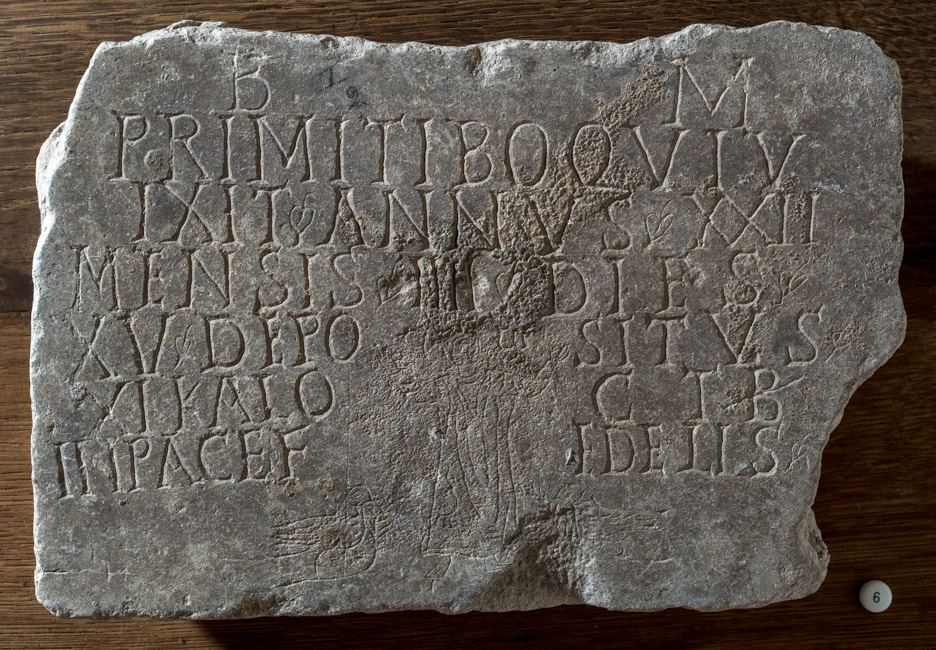 B M
PRIMITIBO QVIV
IXIT ANNVS XXIII
MENSIS III DIES
XV DEPOSITVS
XI KAL OCTB
IN PACE FIDELIS
6